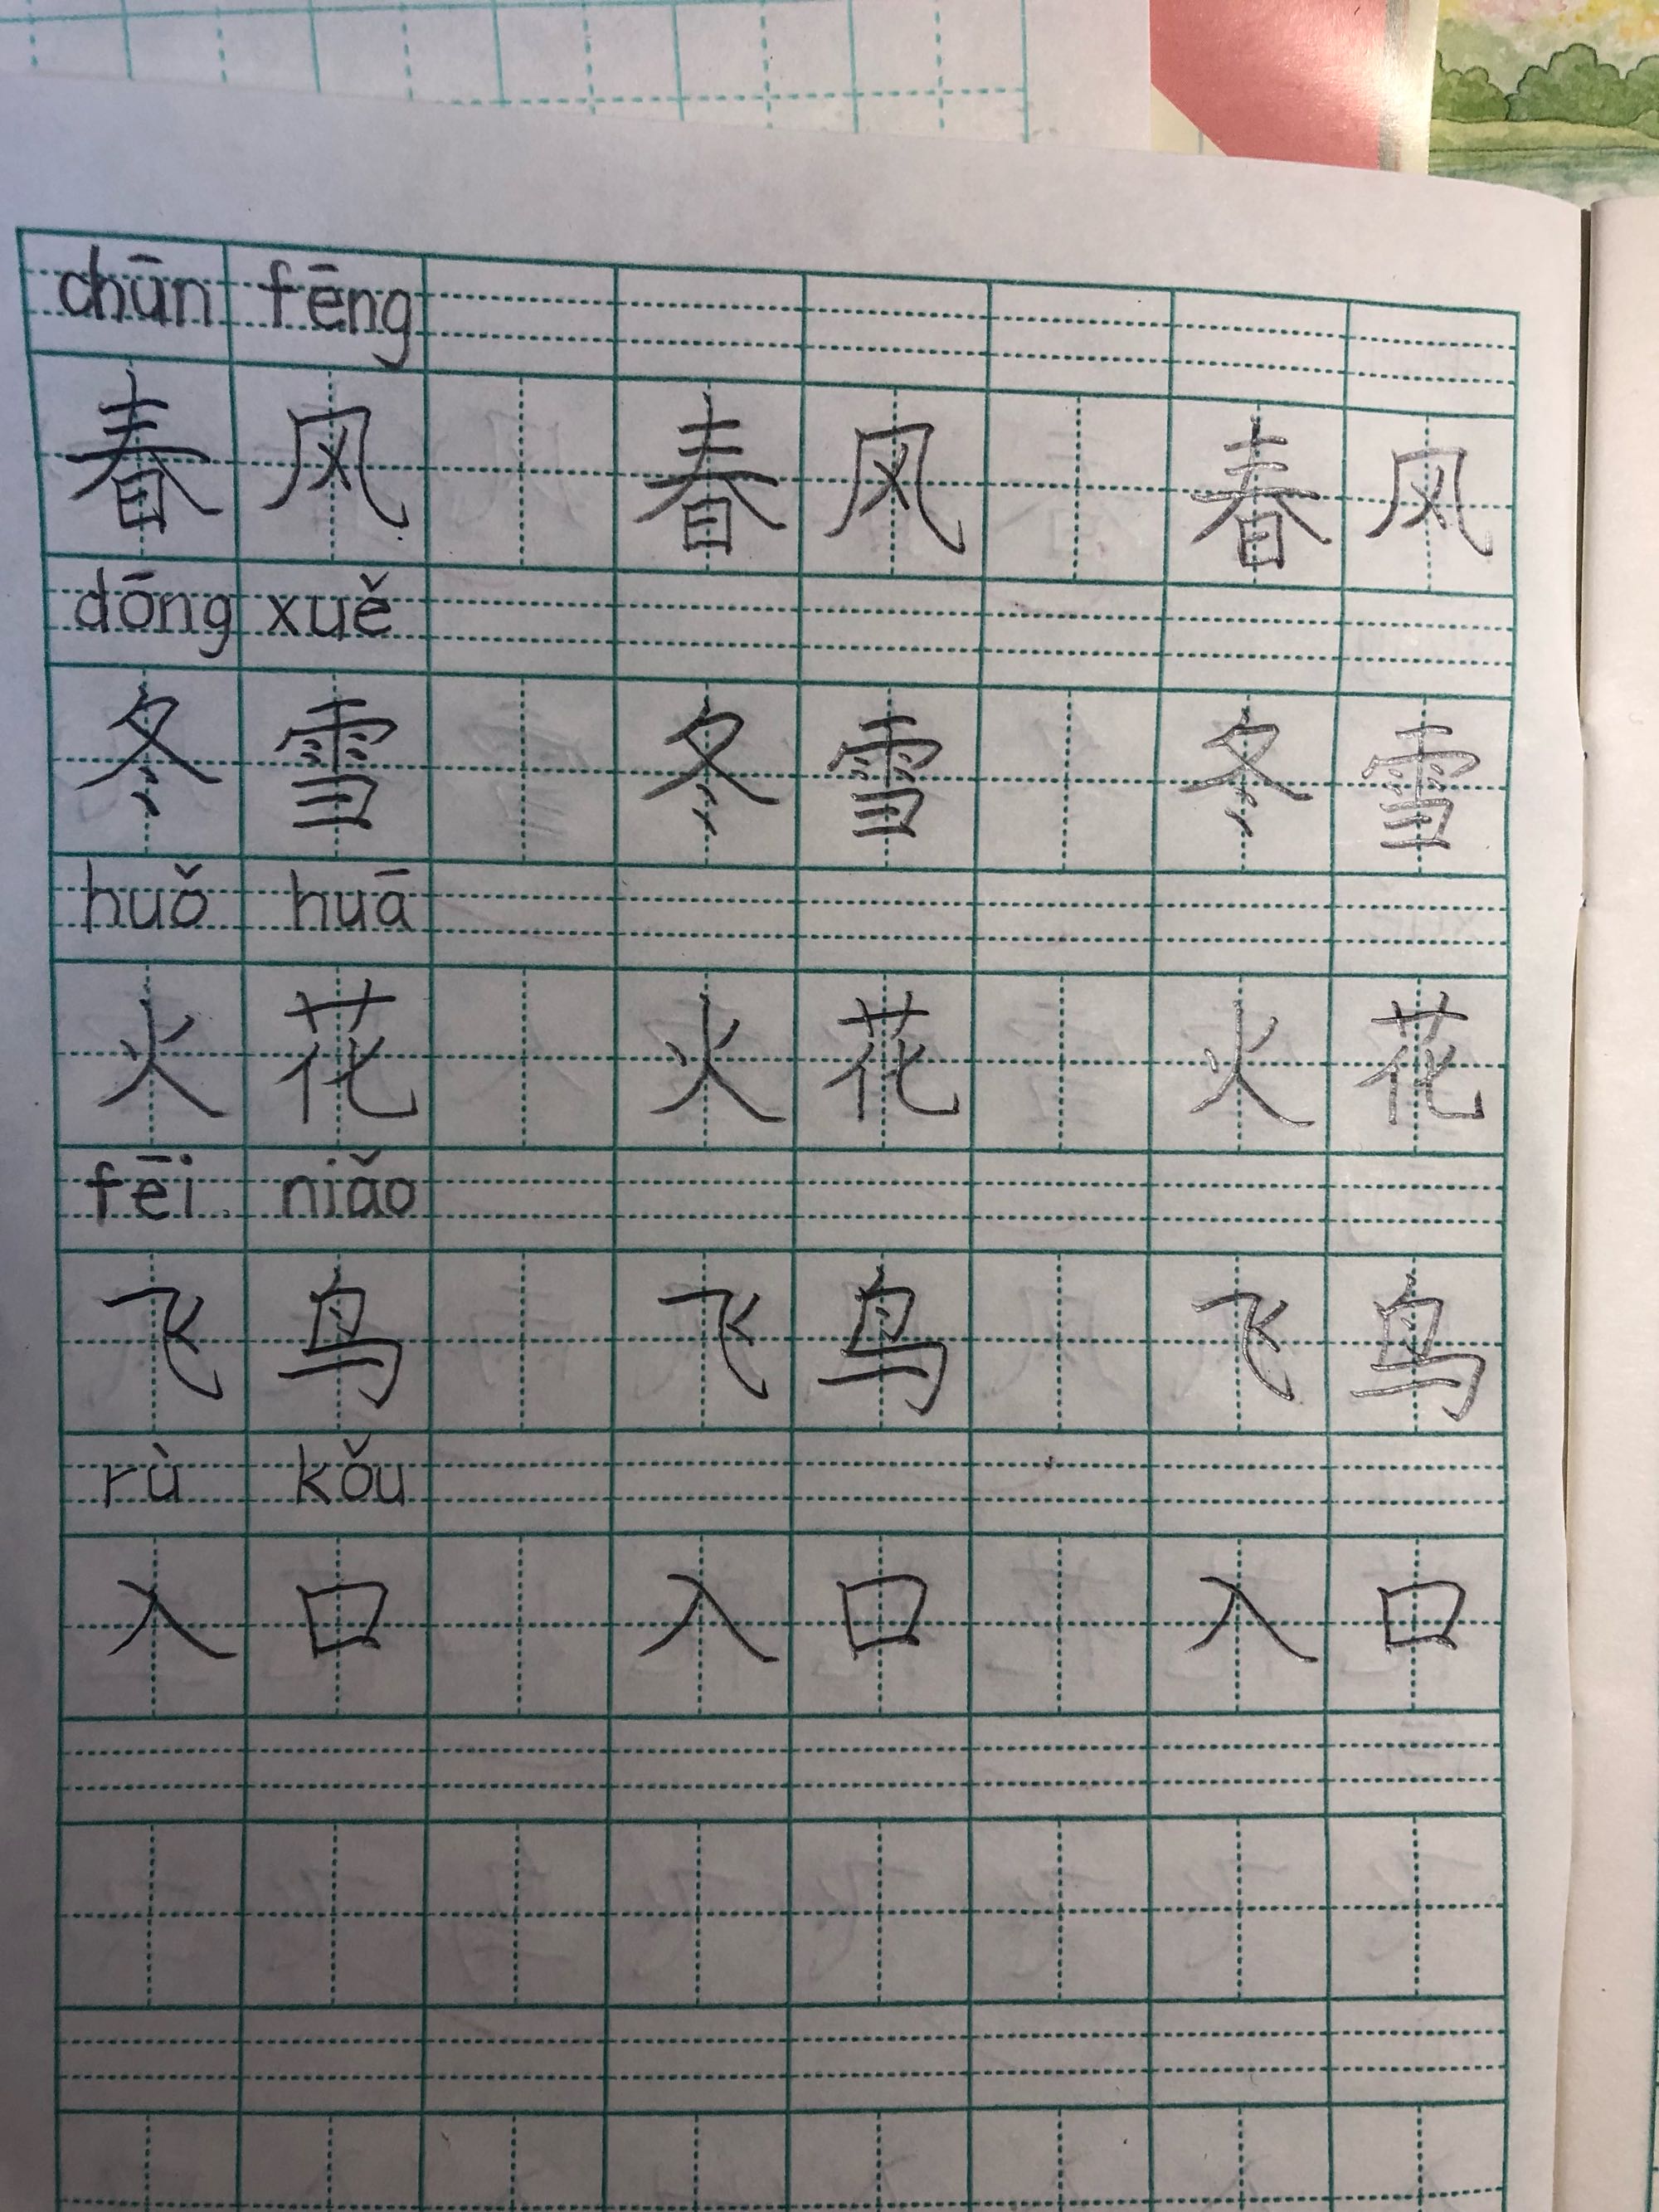 chūn fēng
春风 春风 春风
dōng xuě
冬雪 冬雪 冬雪
huǒ huā
火花 火花 火花
fēi niǎo
飞鸟 飞鸟 飞鸟
rù kǒu
入口 入口 入口